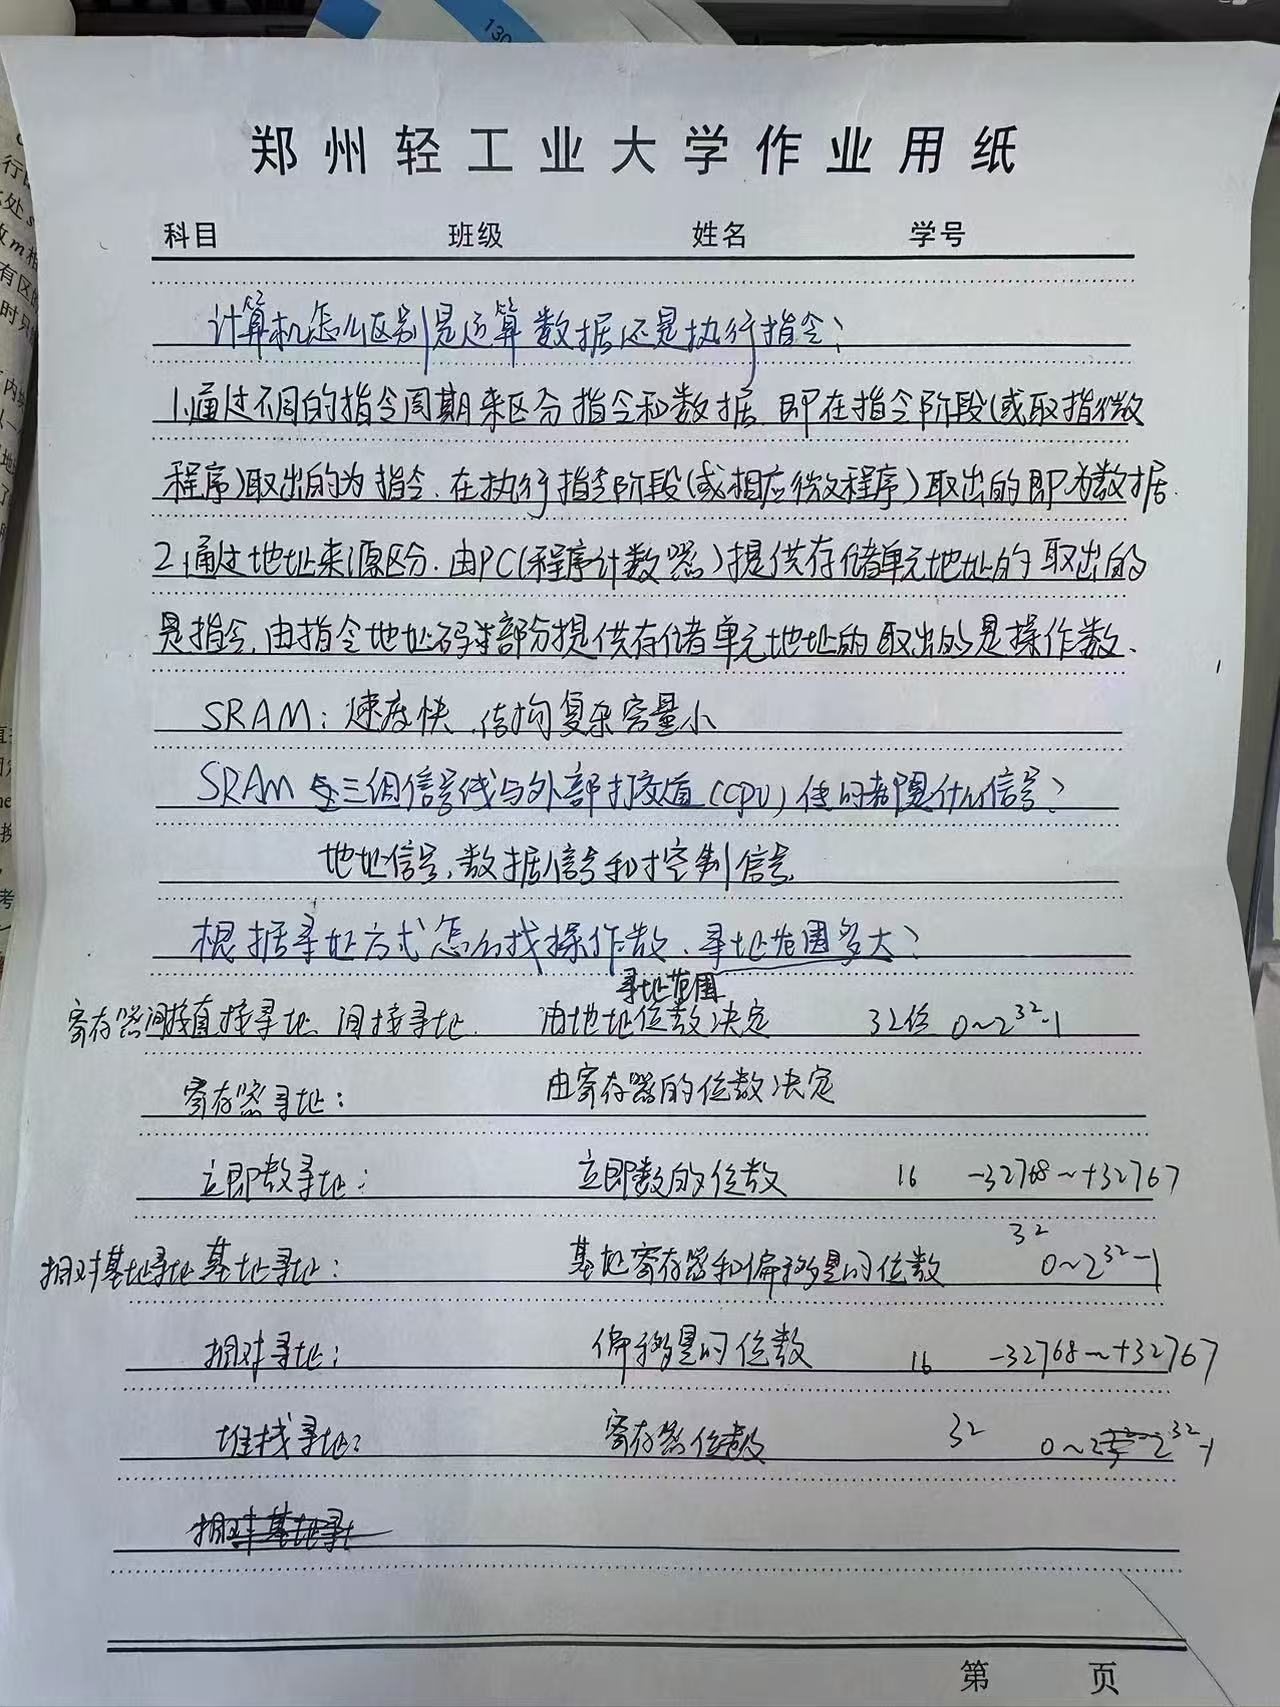 130
郑州轻工业大学作业用纸
科目 班级 姓名 学号
计算机怎么区别是运算数据还是执行指令?
1.通过不同的指令周期来区分指令和数据.即在指令阶段(或取指微
程序)取出的为指令.在执行指令阶段(或相应微程序)取出的即为数据.
2.通过地址来源区分.由PC(程序计数器)提供存储单元地址的取出的
是指令,由指令地址码部分提供存储单元地址的取出的是操作数.
SRAM:速度快.结构复杂容量小
SRAM 三组信号线与外部打交道(CPU)传的都是什么信号?
地址信号,数据信号和控制信号
根据寻址方式怎么找操作数、寻址范围多大?
寻址范围
寄存器间接直接寻址 间接寻址. 由地址位数决定 32位 0~2³²-1
寄存器寻址: 由寄存器的位数决定
立即数寻址: 立即数的位数 16 -32768~+32767
相对基址寻址 基址寻址: 基地寄存器和偏移量的位数 32 0~2³²-1
相对寻址: 偏移量的位数 16 -32768~+32767
堆栈寻址: 寄存器位数 32 0~2³²-1
相对基址寻
第 页